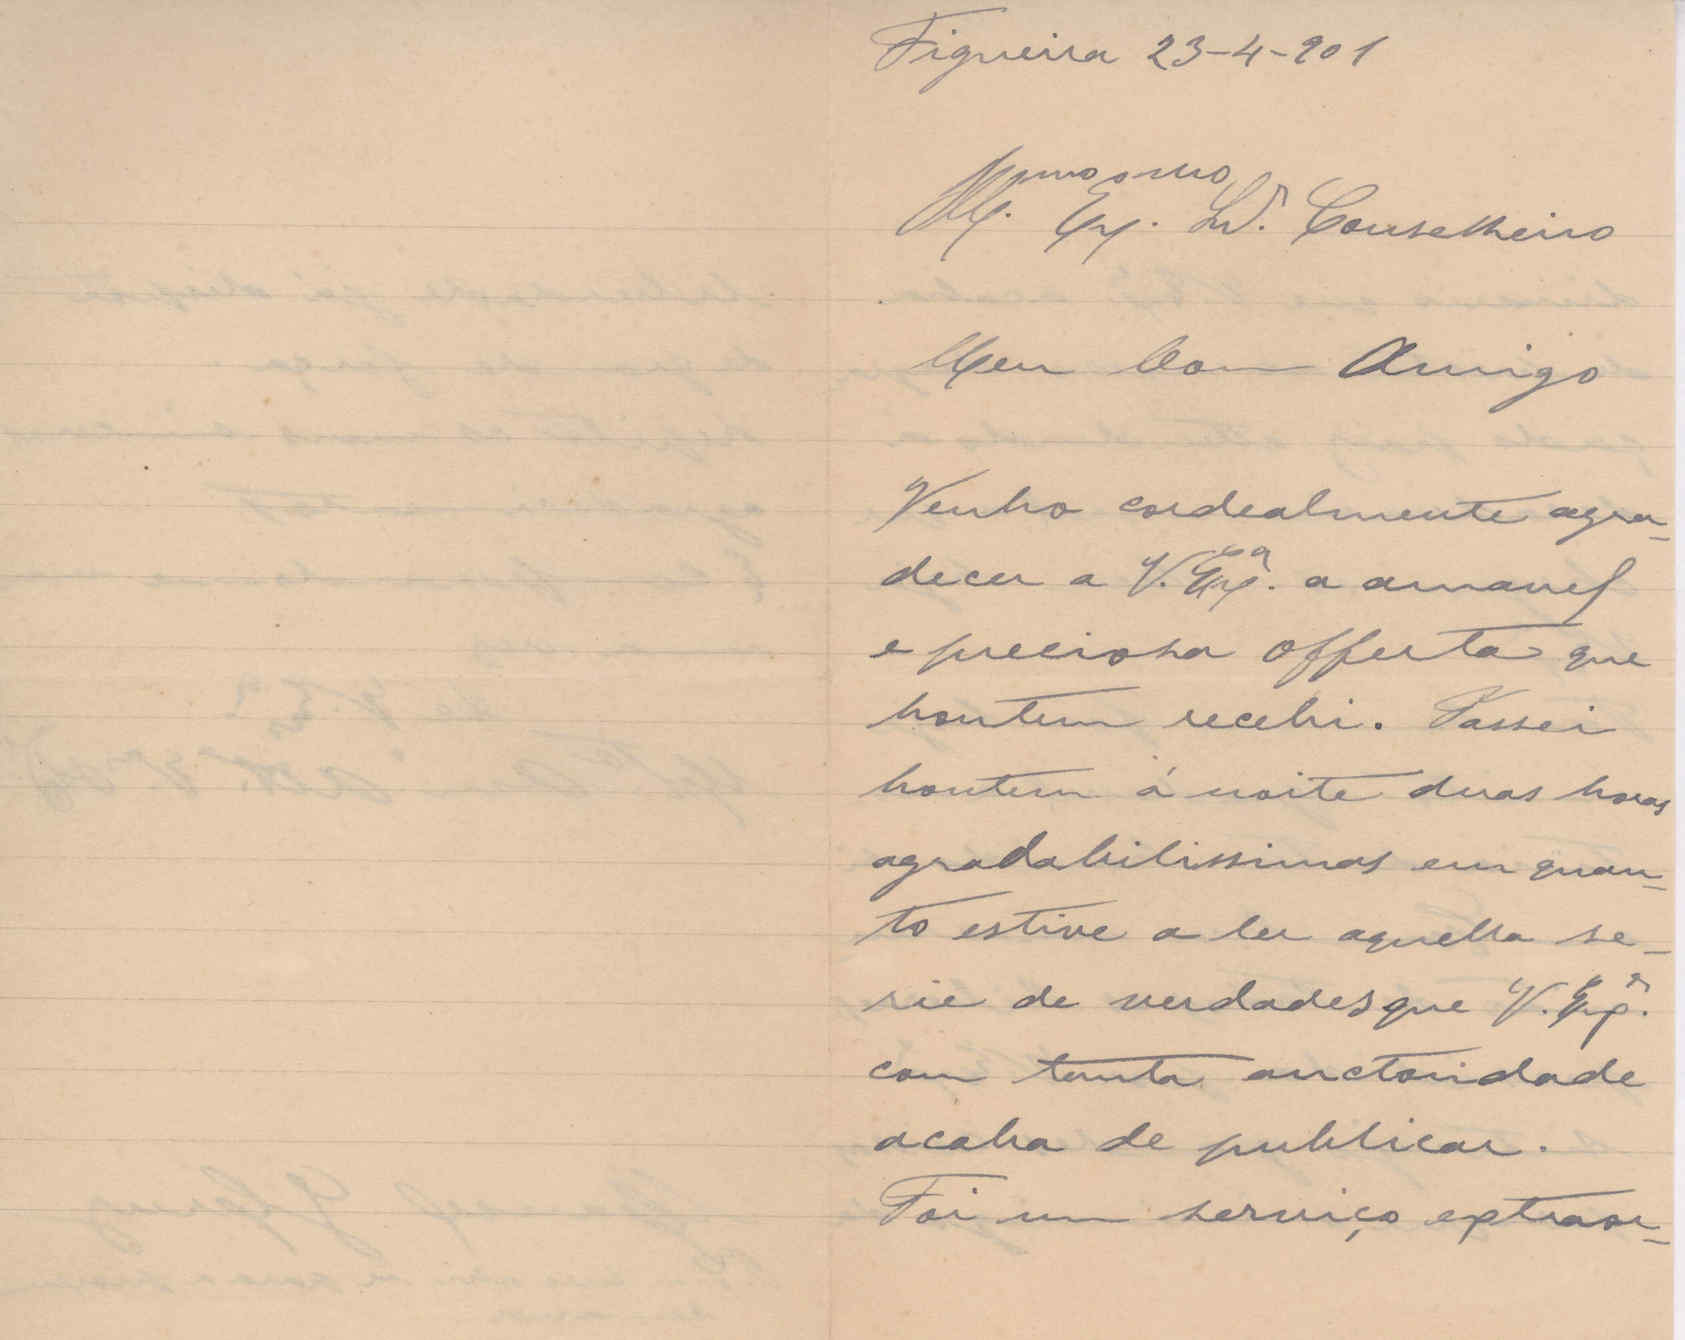 Figueira 23-4-901
Ill.mo Ex.mo Sr. Conselheiro
Meu bom Amigo
Venho cordealmente agra-
decer a V. Ex.ª a amavel
e preciosa offerta que
hontem recebi. Passei
hontem á noite duas horas
agradabilissimas em quan-
to estive a ler aquella se-
rie de verdades que V. Ex.ª
com tanta auctoridade
acaba de publicar.
Foi um serviço extraor-